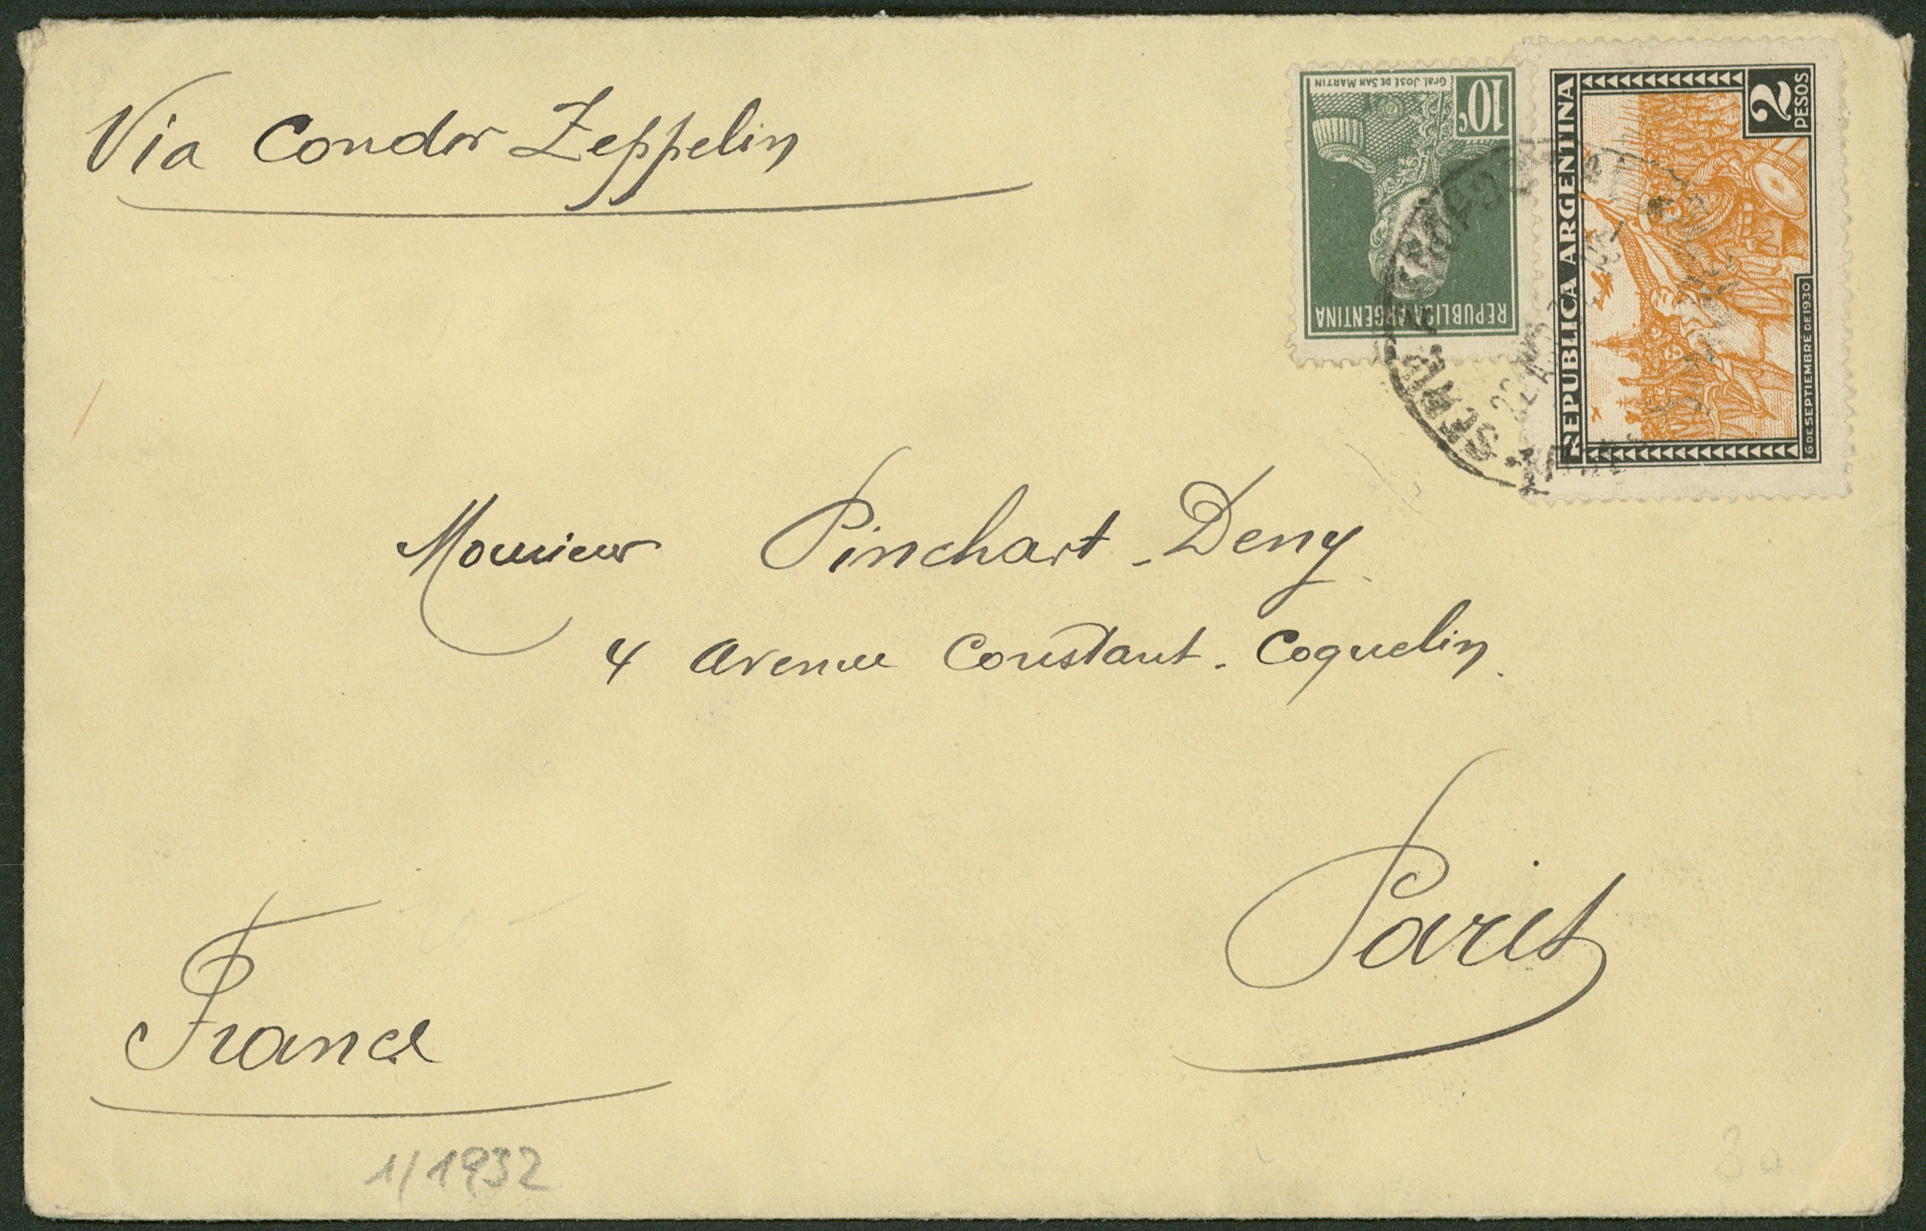 Via Condor Zeppelin
10c
Gral. José de San Martin
REPUBLICA ARGENTINA
2 PESOS
REPUBLICA ARGENTINA
6 DE SEPTIEMBRE DE 1930
Monsieur Pinchart-Deny
4 Avenue Constant-Coquelin.
Paris
France
1/1932